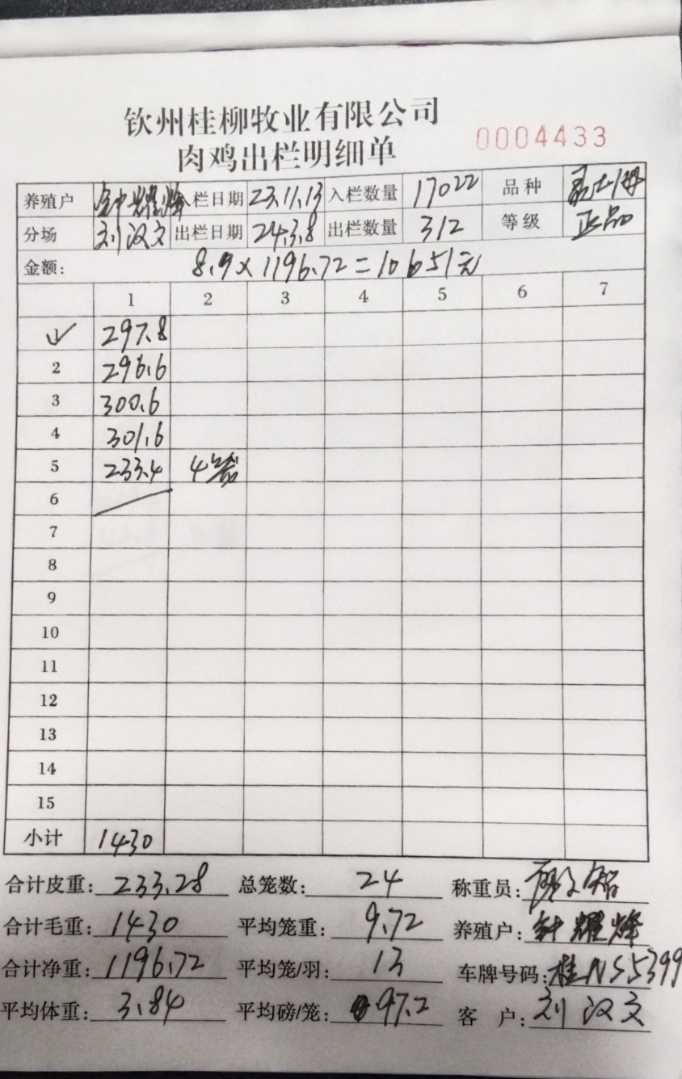 钦州桂柳牧业有限公司
0004433
肉鸡出栏明细单
养殖户 钟耀烽 入栏日期 23.11.13 入栏数量 17022 品种
分场 刘汉文 出栏日期 24.3.8 出栏数量 312 等级 正品
金额: 8.9×1196.72=10651元
1 2 3 4 5 6 7
297.8
2 296.6
3 300.6
4 301.6
5 233.4 4笼
6
7
8
9
10
11
12
13
14
15
小计 1430
合计皮重: 233.28 总笼数: 24 称重员:
合计毛重: 1430 平均笼重: 9.72 养殖户: 钟耀烽
合计净重: 1196.72 平均笼/羽: 13 车牌号码: 桂NS5399
平均体重: 3.84 平均磅/笼: 97.2 客户: 刘汉文